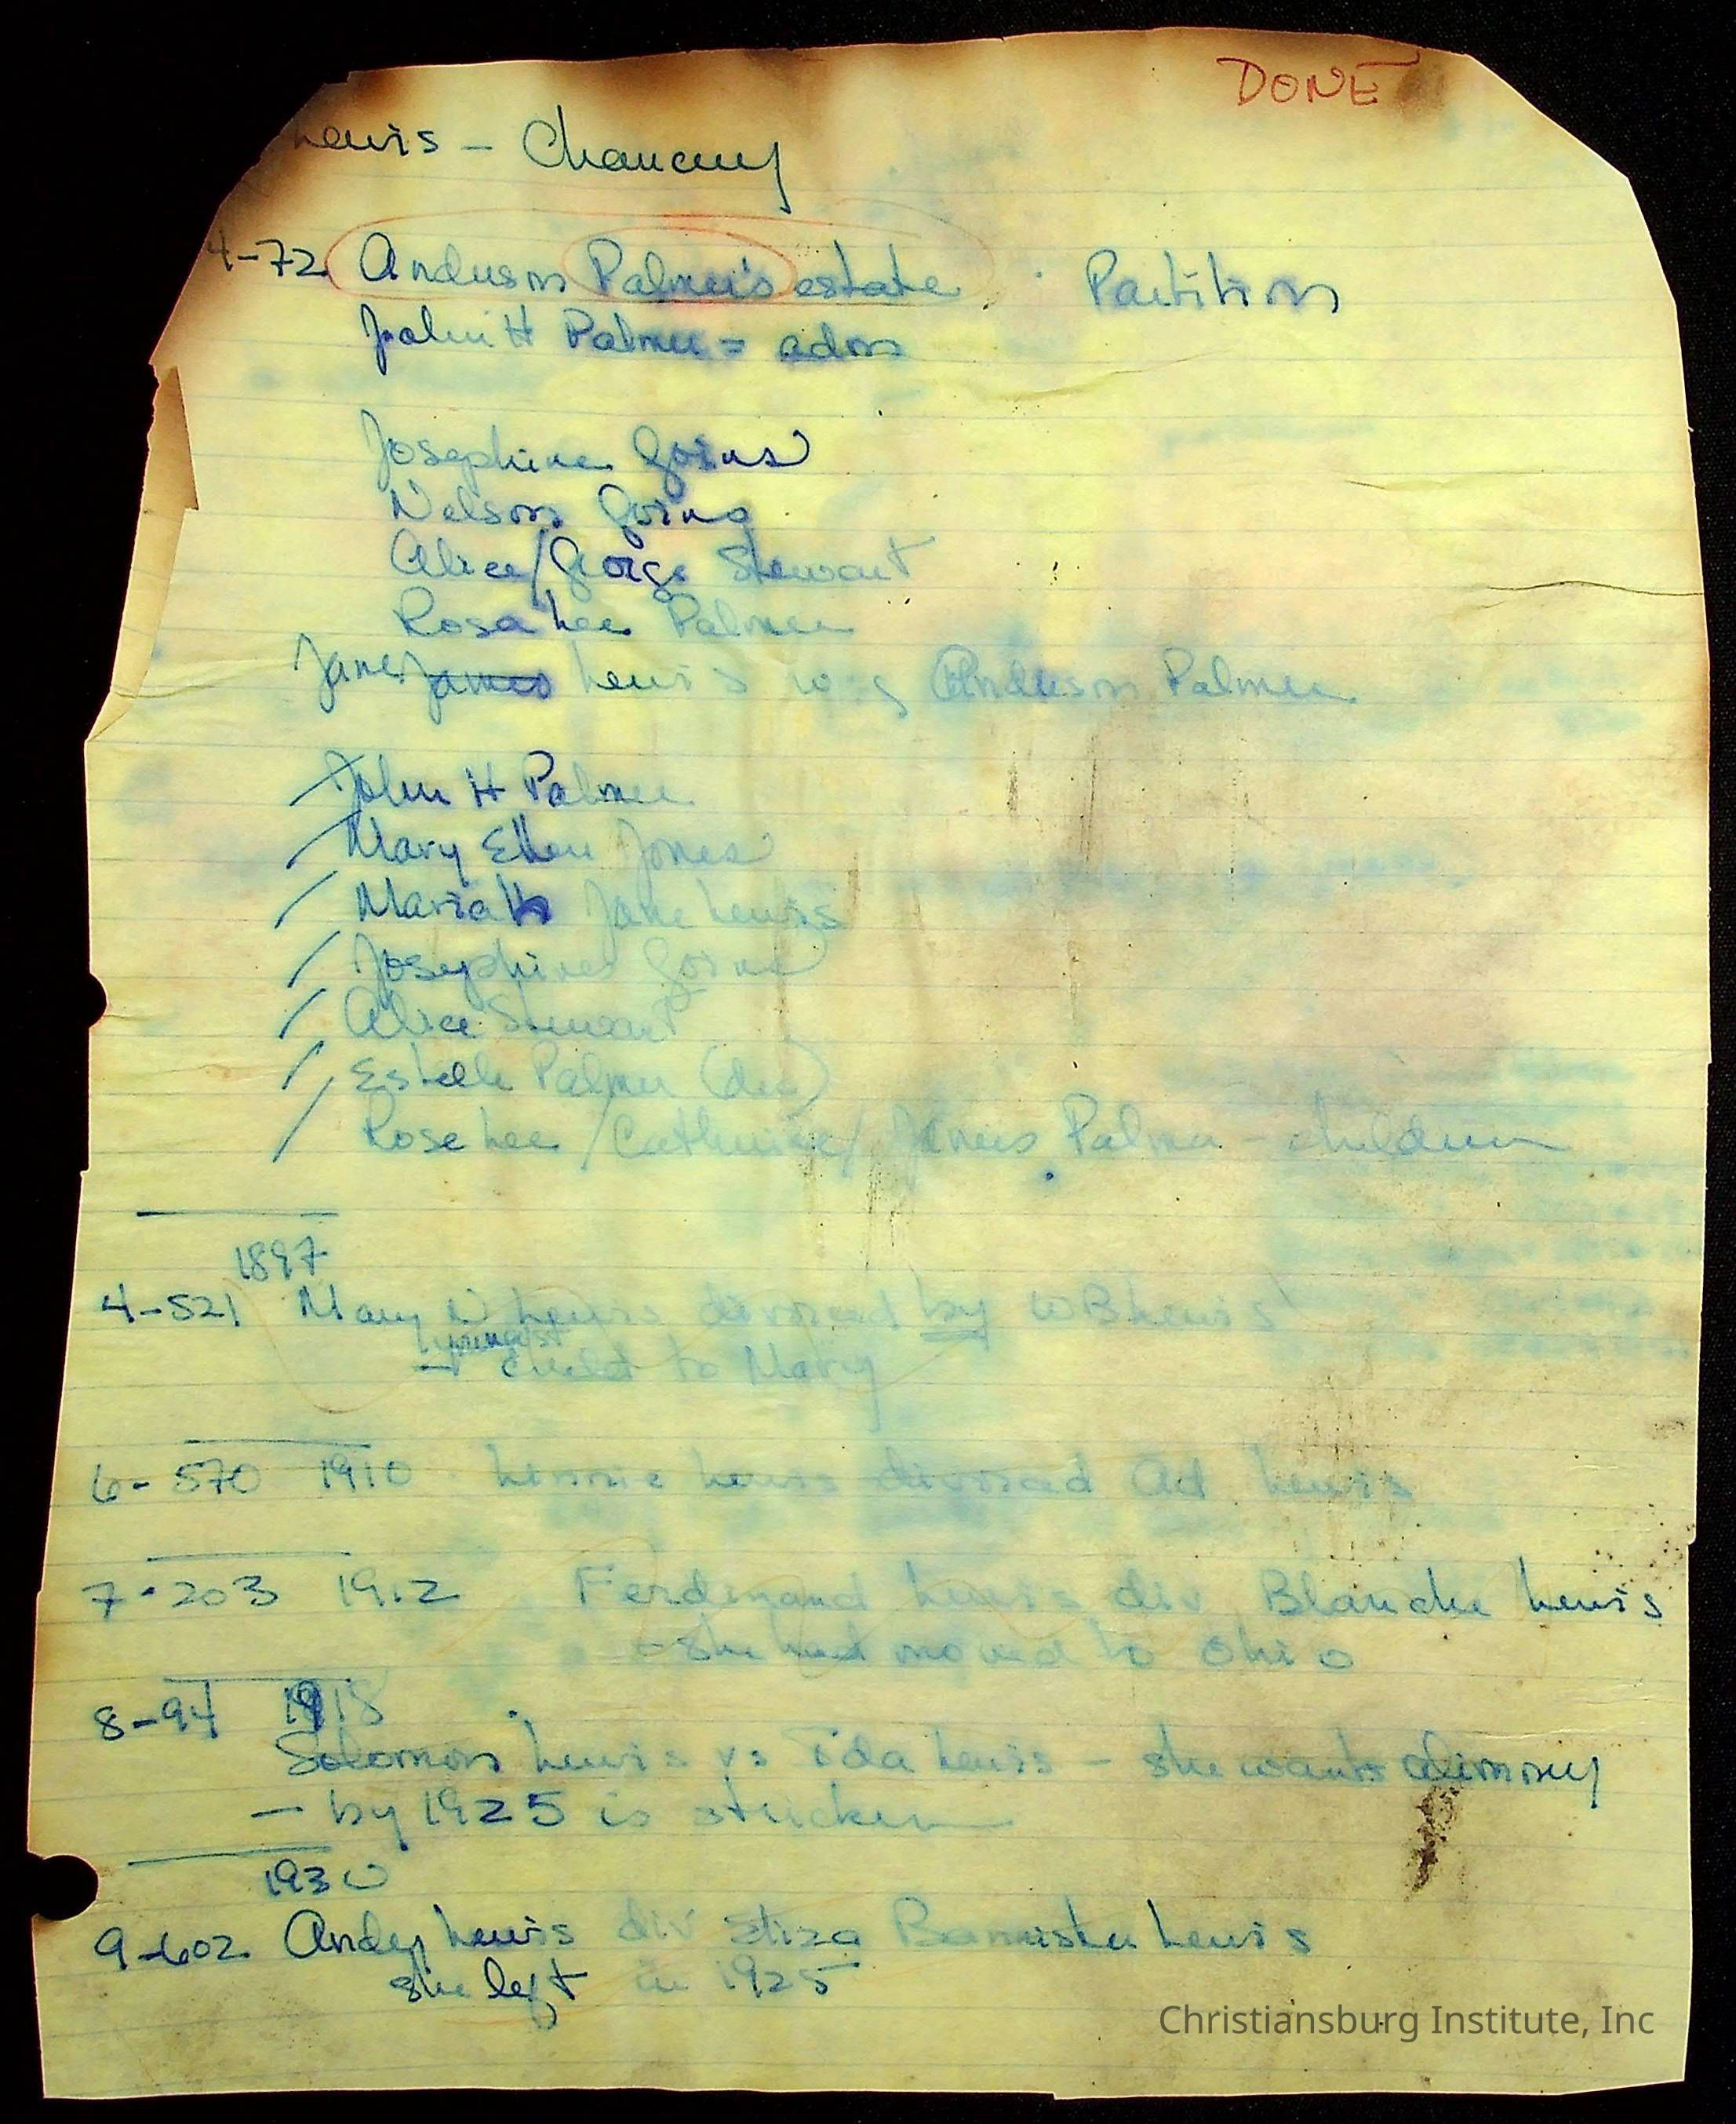 DONE
Lewis - Chancery
4-72 Anderson Palmer's estate Partition
John H Palmer = adm
Josephine Goins
Nelson Goins
Alice/George Stewart
Rosa Lee Palmer
Jane James Lewis Anderson Palmer
John H Palmer
Mary Ellen Jones
Mariah Jane Lewis
Josephine Goins
Alice Stewart
Estelle Palmer (dec)
Rose Lee / Catherine / James Palmer - children
1897
4-521 Mary N Lewis divorced by WB Lewis
youngest
child to Mary
6-570 1910 Linnie Lewis divorced Ad Lewis
7-203 1912 Ferdinand Lewis div Blanche Lewis
- she had moved to Ohio
8-94 1918
Solomon Lewis vs Ida Lewis - she wants alimony
- by 1925 is stricken
1930
9-602 Andy Lewis div Eliza Bannister Lewis
she left in 1925
Christiansburg Institute, Inc